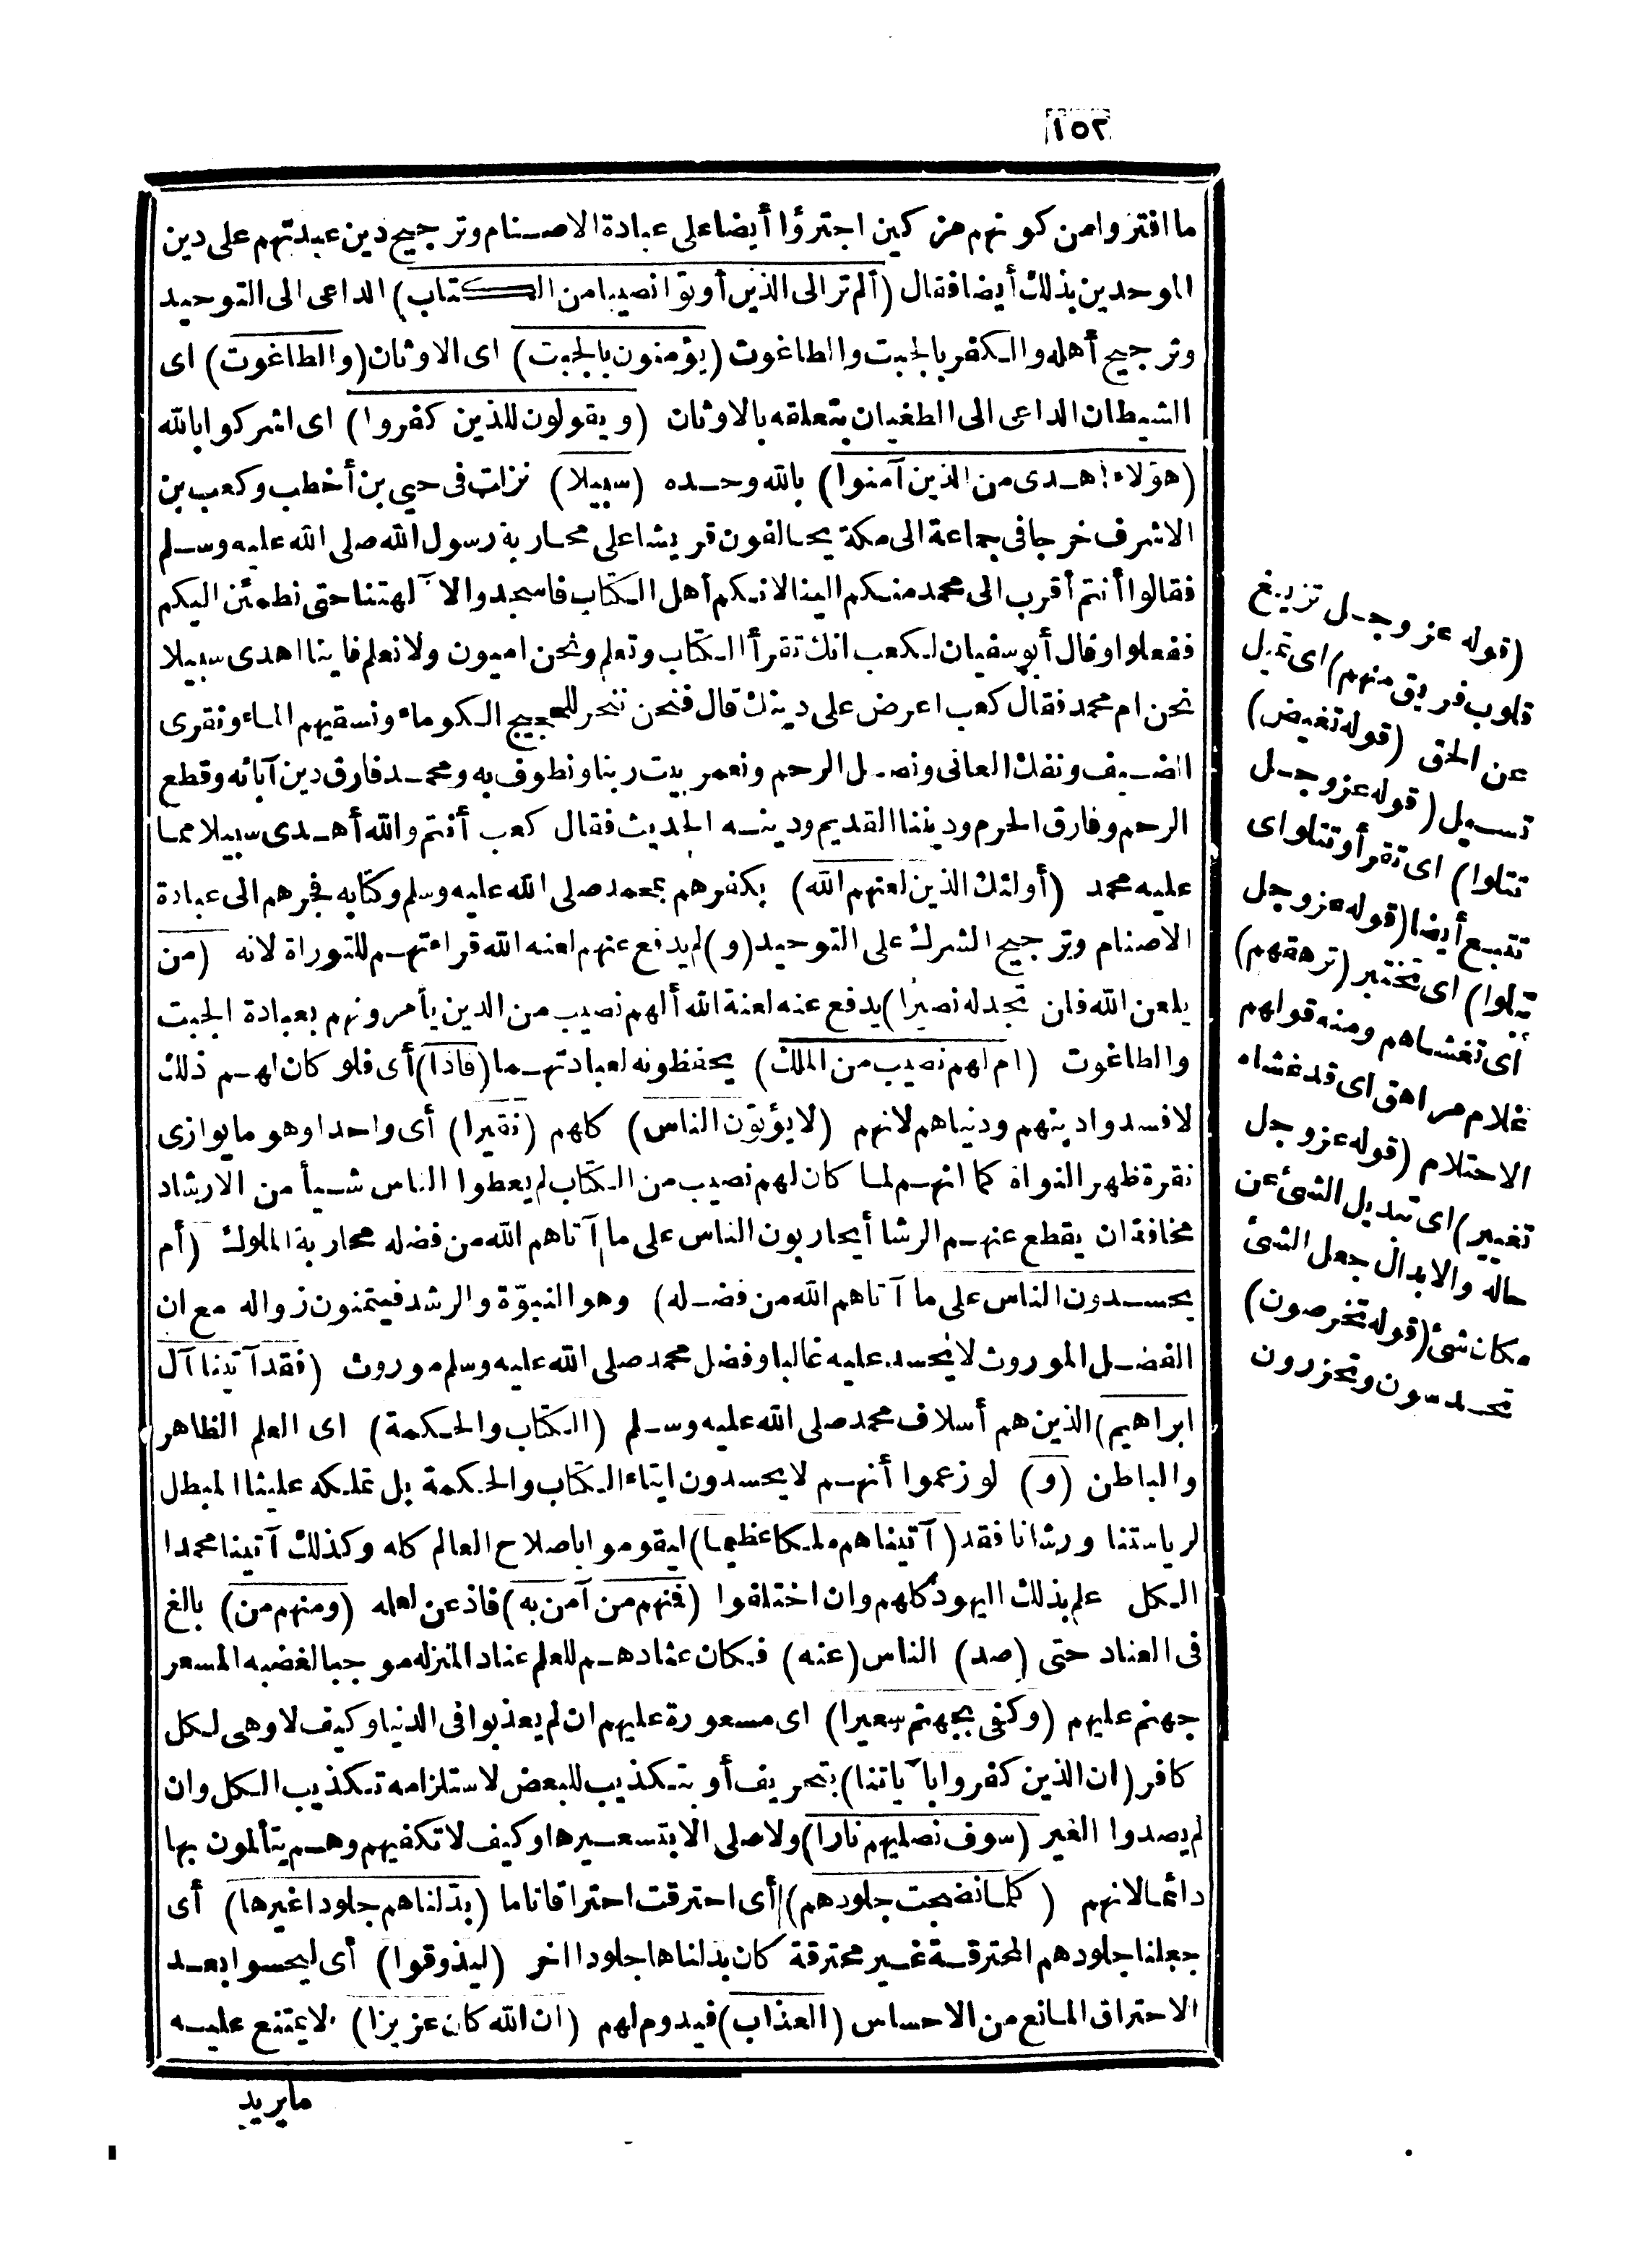 ١٥٢
ما افتروا من كونهم مزكين اجترؤا أيضا على عبادة الاصنام وترجيح دين عبدتهم على دين
الموحدين بذلك أيضا فقال (ألم تر الى الذين أوتوا نصيبا من الكتاب) الداعى الى التوحيد
وترجيح أهله والكفر بالجبت والطاغوت (يؤمنون بالجبت) اى الاوثان (والطاغوت) اى
الشيطان الداعى الى الطغيان بتعلقه بالاوثان (ويقولون للذين كفروا) اى اشركوا بالله
(هؤلاء أهدى من الذين آمنوا) بالله وحده (سبيلا) نزلت فى حيي بن أخطب وكعب بن
الاشرف خرجا فى جماعة الى مكة يحالفون قريشا على محاربة رسول الله صلى الله عليه وسلم
فقالوا أنتم أقرب الى محمد منكم الينا لانكم أهل الكتاب فاسجدوا لآلهتنا حتى نطمئن اليكم
ففعلوا وقال أبو سفيان لكعب انك تقرأ الكتاب وتعلم ونحن اميون ولا نعلم فاينا اهدى سبيلا
نحن ام محمد فقال كعب اعرض على دينك قال فنحن ننحر للحجيج الكوماء ونسقيهم الماء ونقرى
الضيف ونفك العانى ونصل الرحم ونعمر بيت ربنا ونطوف به ومحمد فارق دين آبائه وقطع
الرحم وفارق الحرم وديننا القديم ودينه الحديث فقال كعب أنتم والله أهدى سبيلا مما
عليه محمد (أولئك الذين لعنهم الله) بكفرهم بمحمد صلى الله عليه وسلم وكتابه فجرهم الى عبادة
الاصنام وترجيح الشرك على التوحيد (و) لم يدفع عنهم لعنه الله قراءتهم للتوراة لانه (من
يلعن الله فلن تجد له نصيرا) يدفع عنه لعنة الله ألهم نصيب من الدين يأمرونهم بعبادة الجبت
والطاغوت (ام لهم نصيب من الملك) يحفظونه لعبادتهما (فاذا) أى فلو كان لهم ذلك
لافسدوا دينهم ودنياهم لانهم (لا يؤتون الناس) كلهم (نقيرا) أى واحدا وهو ما يوازى
نقرة ظهر النواة كما انهم لما كان لهم نصيب من الكتاب لم يعطوا الناس شيأ من الارشاد
مخافة ان يقطع عنهم الرشا أيحاربون الناس على ما آتاهم الله من فضله محاربة الملوك (أم
يحسدون الناس على ما آتاهم الله من فضله) وهو النبوّة والرشد فيتمنون زواله مع ان
الفضل الموروث لا يحسد عليه غالبا وفضل محمد صلى الله عليه وسلم موروث (فقد آتينا آل
ابراهيم) الذين هم أسلاف محمد صلى الله عليه وسلم (الكتاب والحكمة) اى العلم الظاهر
والباطن (و) لو زعموا أنهم لا يحسدون ايتاء الكتاب والحكمة بل تملكه علينا المبطل
لرياستنا ورشانا فقد (آتيناهم ملكا عظيما) ليقوموا باصلاح العالم كله وكذلك آتينا محمدا
الكل علم بذلك اليهود كلهم وان اختلفوا (فمنهم من آمن به) فاذعن لعلمه (ومنهم من) بالغ
فى العناد حتى (صد) الناس (عنه) فكان عنادهم للعلم عناد المنزله موجبا لغضبه المسعر
جهنم عليهم (وكفى بجهنم سعيرا) اى مسعورة عليهم ان لم يعذبوا فى الدنيا وكيف لا وهى لكل
كافر (ان الذين كفروا بآياتنا) بتحريف أو بتكذيب للبعض لاستلزامه تكذيب الكل وان
لم يصدوا الغير (سوف نصليهم نارا) ولا صلى الا بتسعيرها وكيف لا تكفيهم وهم يتألمون بها
دائما لانهم (كلما نضجت جلودهم) أى احترقت احتراقا تاما (بدّلناهم جلودا غيرها) أى
جعلنا جلودهم المحترقة غير محترقة كان بدلناها جلودا اخر (ليذوقوا) أى ليحسوا بعد
الاحتراق المانع من الاحساس (العذاب) فيدوم لهم (ان الله كان عزيزا) لا يمتنع عليه
ما يريد
(قوله عز وجل تزيغ
قلوب فريق منهم) اى تميل
عن الحق (قوله تغيض)
تسيل (قوله عز وجل
تتلوا) اى تقرأ وتتلوا اى
تتبع أيضا (قوله عز وجل
تبلوا) اى تختبر (ترهقهم)
أى تغشاهم ومنه قولهم
غلام مراهق اى قد غشاه
الاحتلام (قوله عز وجل
تغيير) اى تبديل الشئ عن
حاله والابدال جعل الشئ
مكان شئ (قوله تخرصون)
تحدسون وتحزرون